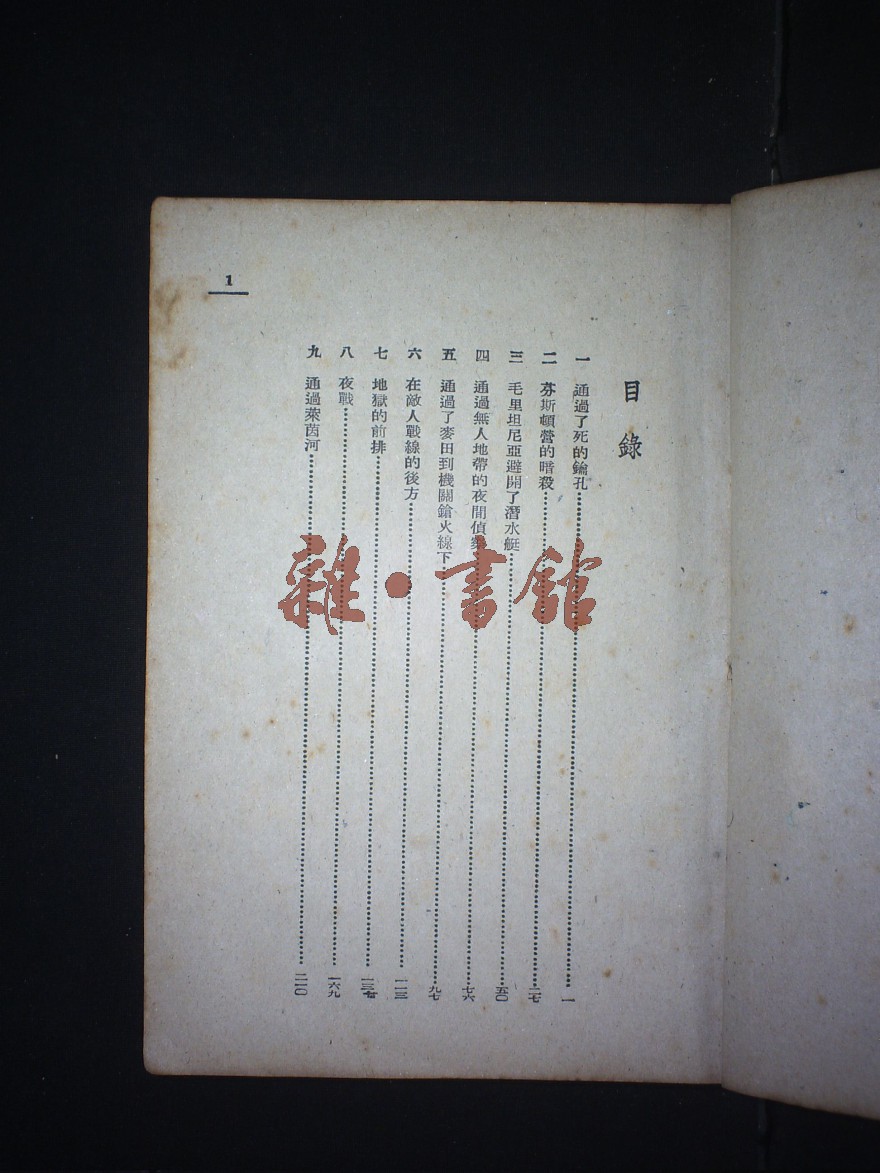 目錄
一 通過了死的鑰孔 一
二 芬斯頓營的暗殺 二七
三 毛里坦尼亞避開了潛水艇 五〇
四 通過無人地帶的夜間偵察 七六
五 通過了麥田到機關鎗火線下 九七
六 在敵人戰線的後方 一二三
七 地獄的前排 一三七
八 夜戰 一六九
九 通過萊茵河 二一〇
1
雜·書館